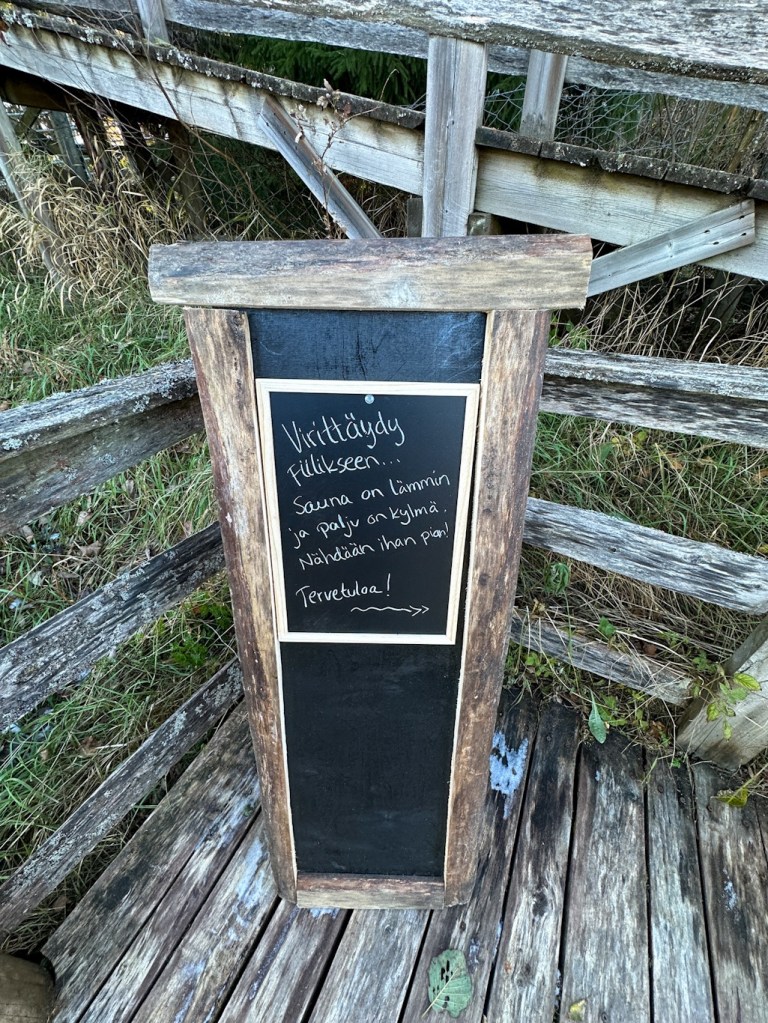 Virittäydy
Fiilikseen...
Sauna on lämmin
ja palju on kylmä.
Nähdään ihan pian!
Tervetuloa!